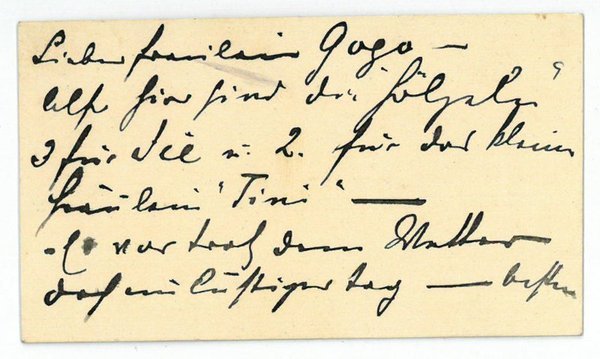 Lieber Fräulein Gogo —
Also hier sind die "Hölzeln"
3 für Sie u. 2. für das kleine
Fräulein "Tini" —
Es war trotz dem Wetter
doch ein lustiger Tag — besten